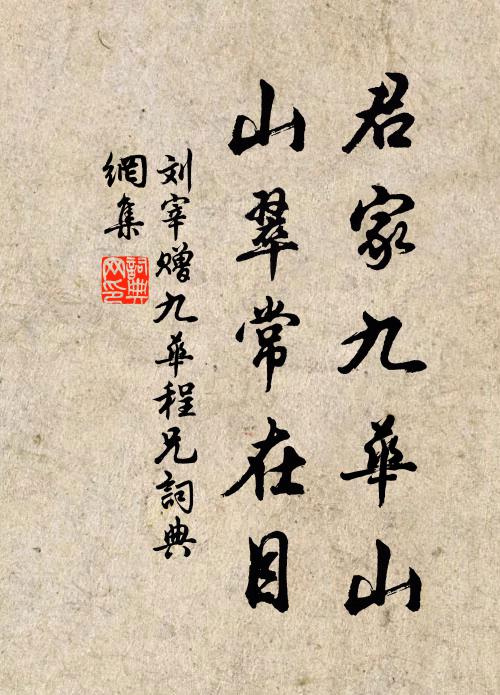 君家九华山
山翠常在目
刘宰赠九华程兄詞典
網集
詞典
网印